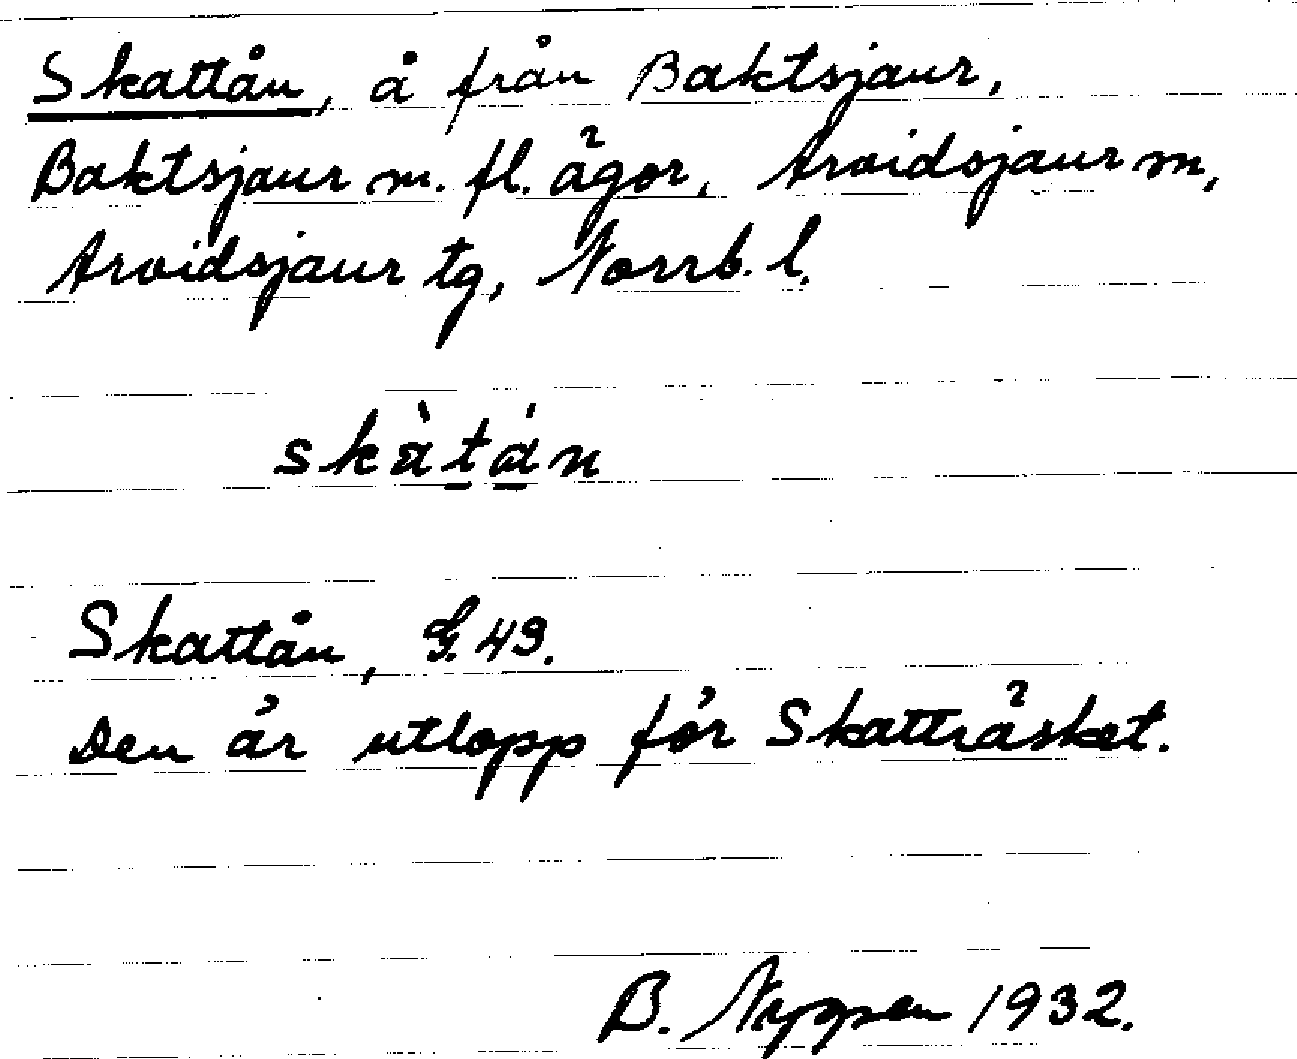 Skattån, å från Baktsjaur,
Baktsjaur m. fl. ägor, Arvidsjaur m,
Arvidsjaur tg, Norrb. l.
skàtán
Skattån, G. 49.
Den är utlopp för Skatträsket.
B. 1932.